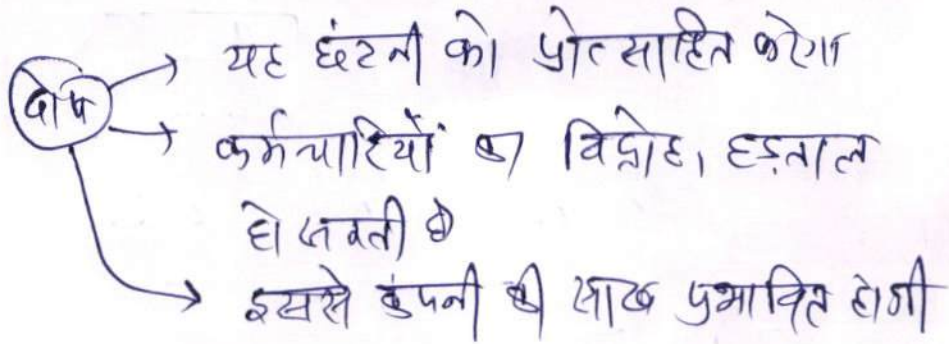 यह छंटनी को प्रोत्साहित करेगा
दोष
कर्मचारियों का विद्रोह, हड़ताल
हो सकती है
इससे कंपनी की साख प्रभावित होगी